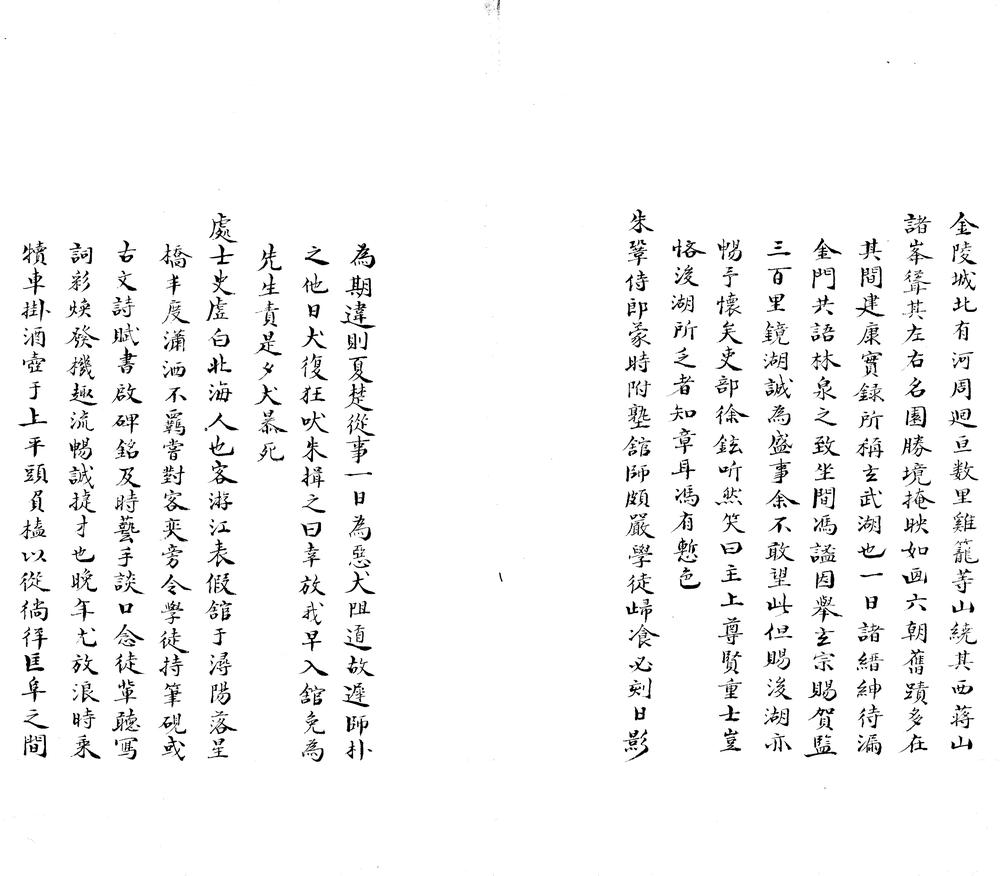 金陵城北有河周迴亘数里雞籠荨山繞其西蒋山
諸峯聳其左右名園勝境掩映如画六朝舊蹟多在
其間建康實録所稱玄武湖也一日諸縉紳待漏
金門共語林泉之致坐間馮謐因舉玄宗賜賀監
三百里鏡湖誠為盛事余不敢望此但賜後湖亦
暢予懷矣吏部徐鉉听然笑曰主上尊賢重士豈
恡後湖所乏者知章耳馮有慙色
朱鞏侍郎蒙時附塾舘師頗嚴學徒歸飡必刻日影
為期違則夏楚從事一日為惡犬阻道故遲師扑
之他日犬復狂吠朱揖之曰幸放我早入舘免為
先生責是夕犬暴死
處士史虛白北海人也客游江表假舘于潯陽落星
橋丰度瀟洒不羈嘗對客奕旁令學徒持筆硯或
古文詩賦書啟碑銘及時藝手談口念徒軰聽寫
詞彩煥發機趣流暢誠捷才也晚年尤放浪時乘
犢車掛酒壺于上平頭員榼以從徜徉匡阜之間